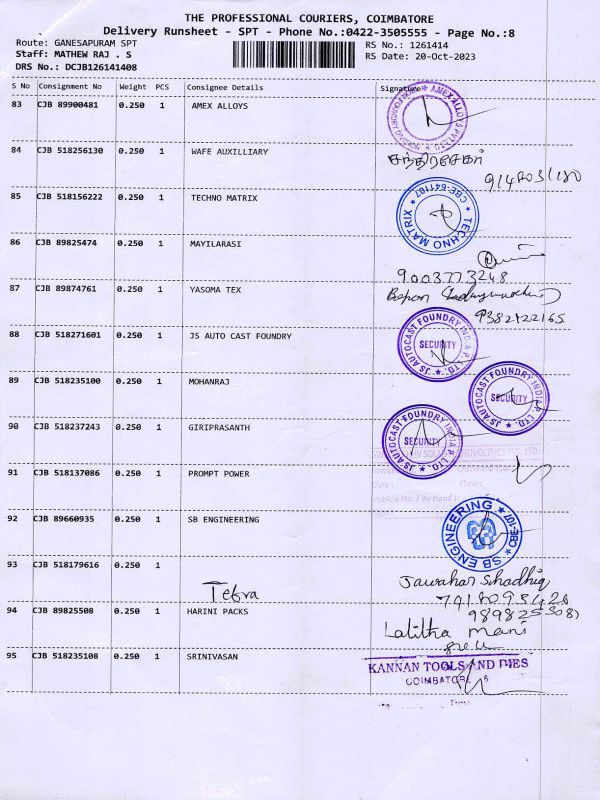 THE PROFESSIONAL COURIERS, COIMBATORE
Delivery Runsheet - SPT - Phone No.:0422-3505555 - Page No.:8
Route: GANESAPURAM SPT
RS No.: 1261414
Staff: MATHEW RAJ . S
RS Date: 20-Oct-2023
DRS No.: DCJB126141408
S No Consignment No Weight PCS Consignee Details Signature
83 CJB 89900481 0.250 1 AMEX ALLOYS
AMEX ALLOYS PVT LTD
84 CJB 518256130 0.250 1 WAFE AUXILLIARY
சந்திரசேகர்
85 CJB 518156222 0.250 1 TECHNO MATRIX
TECHNO MATRIX CBE-641107
86 CJB 89825474 0.250 1 MAYILARASI
9003773248
87 CJB 89874761 0.250 1 YASOMA TEX
88 CJB 518271601 0.250 1 JS AUTO CAST FOUNDRY
JS AUTOCAST FOUNDRY INDIA P. LTD.
SECURITY
89 CJB 518235100 0.250 1 MOHANRAJ
JS AUTOCAST FOUNDRY INDIA P. LTD.
SECURITY
90 CJB 518237243 0.250 1 GIRIPRASANTH
JS AUTOCAST FOUNDRY INDIA P. LTD.
SECURITY
91 CJB 518137086 0.250 1 PROMPT POWER
Vehicle No. / By Hand :
92 CJB 89660935 0.250 1 SB ENGINEERING
SB ENGINEERING
93 CJB 518179616 0.250 1
Tetra
Jawahar
94 CJB 89825508 0.250 1 HARINI PACKS
Lalitha mani
95 CJB 518235108 0.250 1 SRINIVASAN
KANNAN TOOLS AND DIES
COIMBATORE